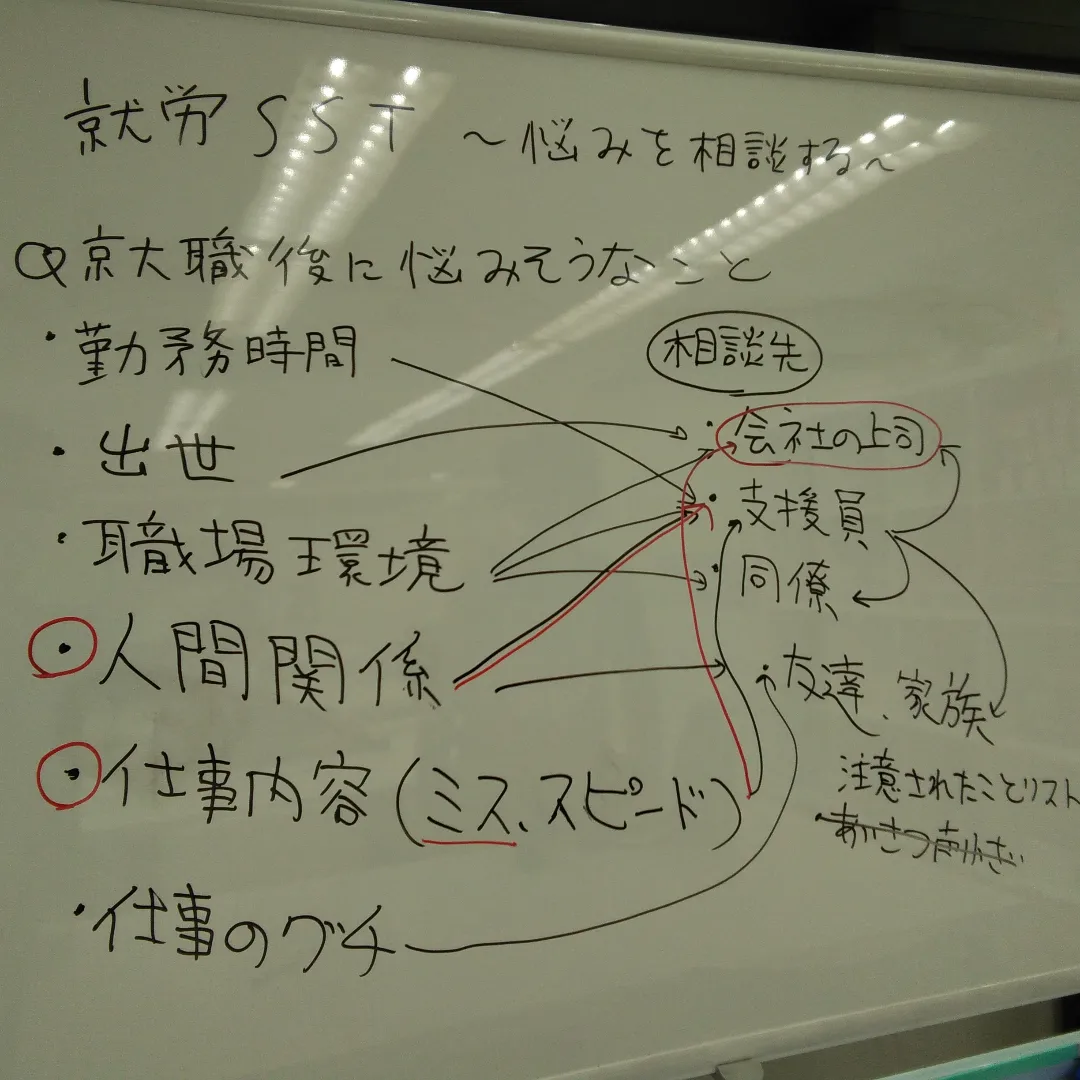 就労SST ~悩みを相談する~
Q京大職後に悩みそうなこと
・勤務時間
・出世
・職場環境
・人間関係
・仕事内容(ミス、スピード)
・仕事のグチ
相談先
・会社の上司
・支援員
・同僚
・友達、家族
注意されたことリスト
・あいさつ